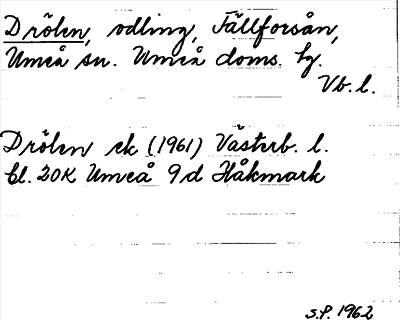 Drölen, odling, Fällforsån,
Umeå sn. Umeå doms. hg.
Vb. l.
Drölen ek (1961) Västerb. l.
bl. 20K Umeå 9d Håkmark
S.P. 1962